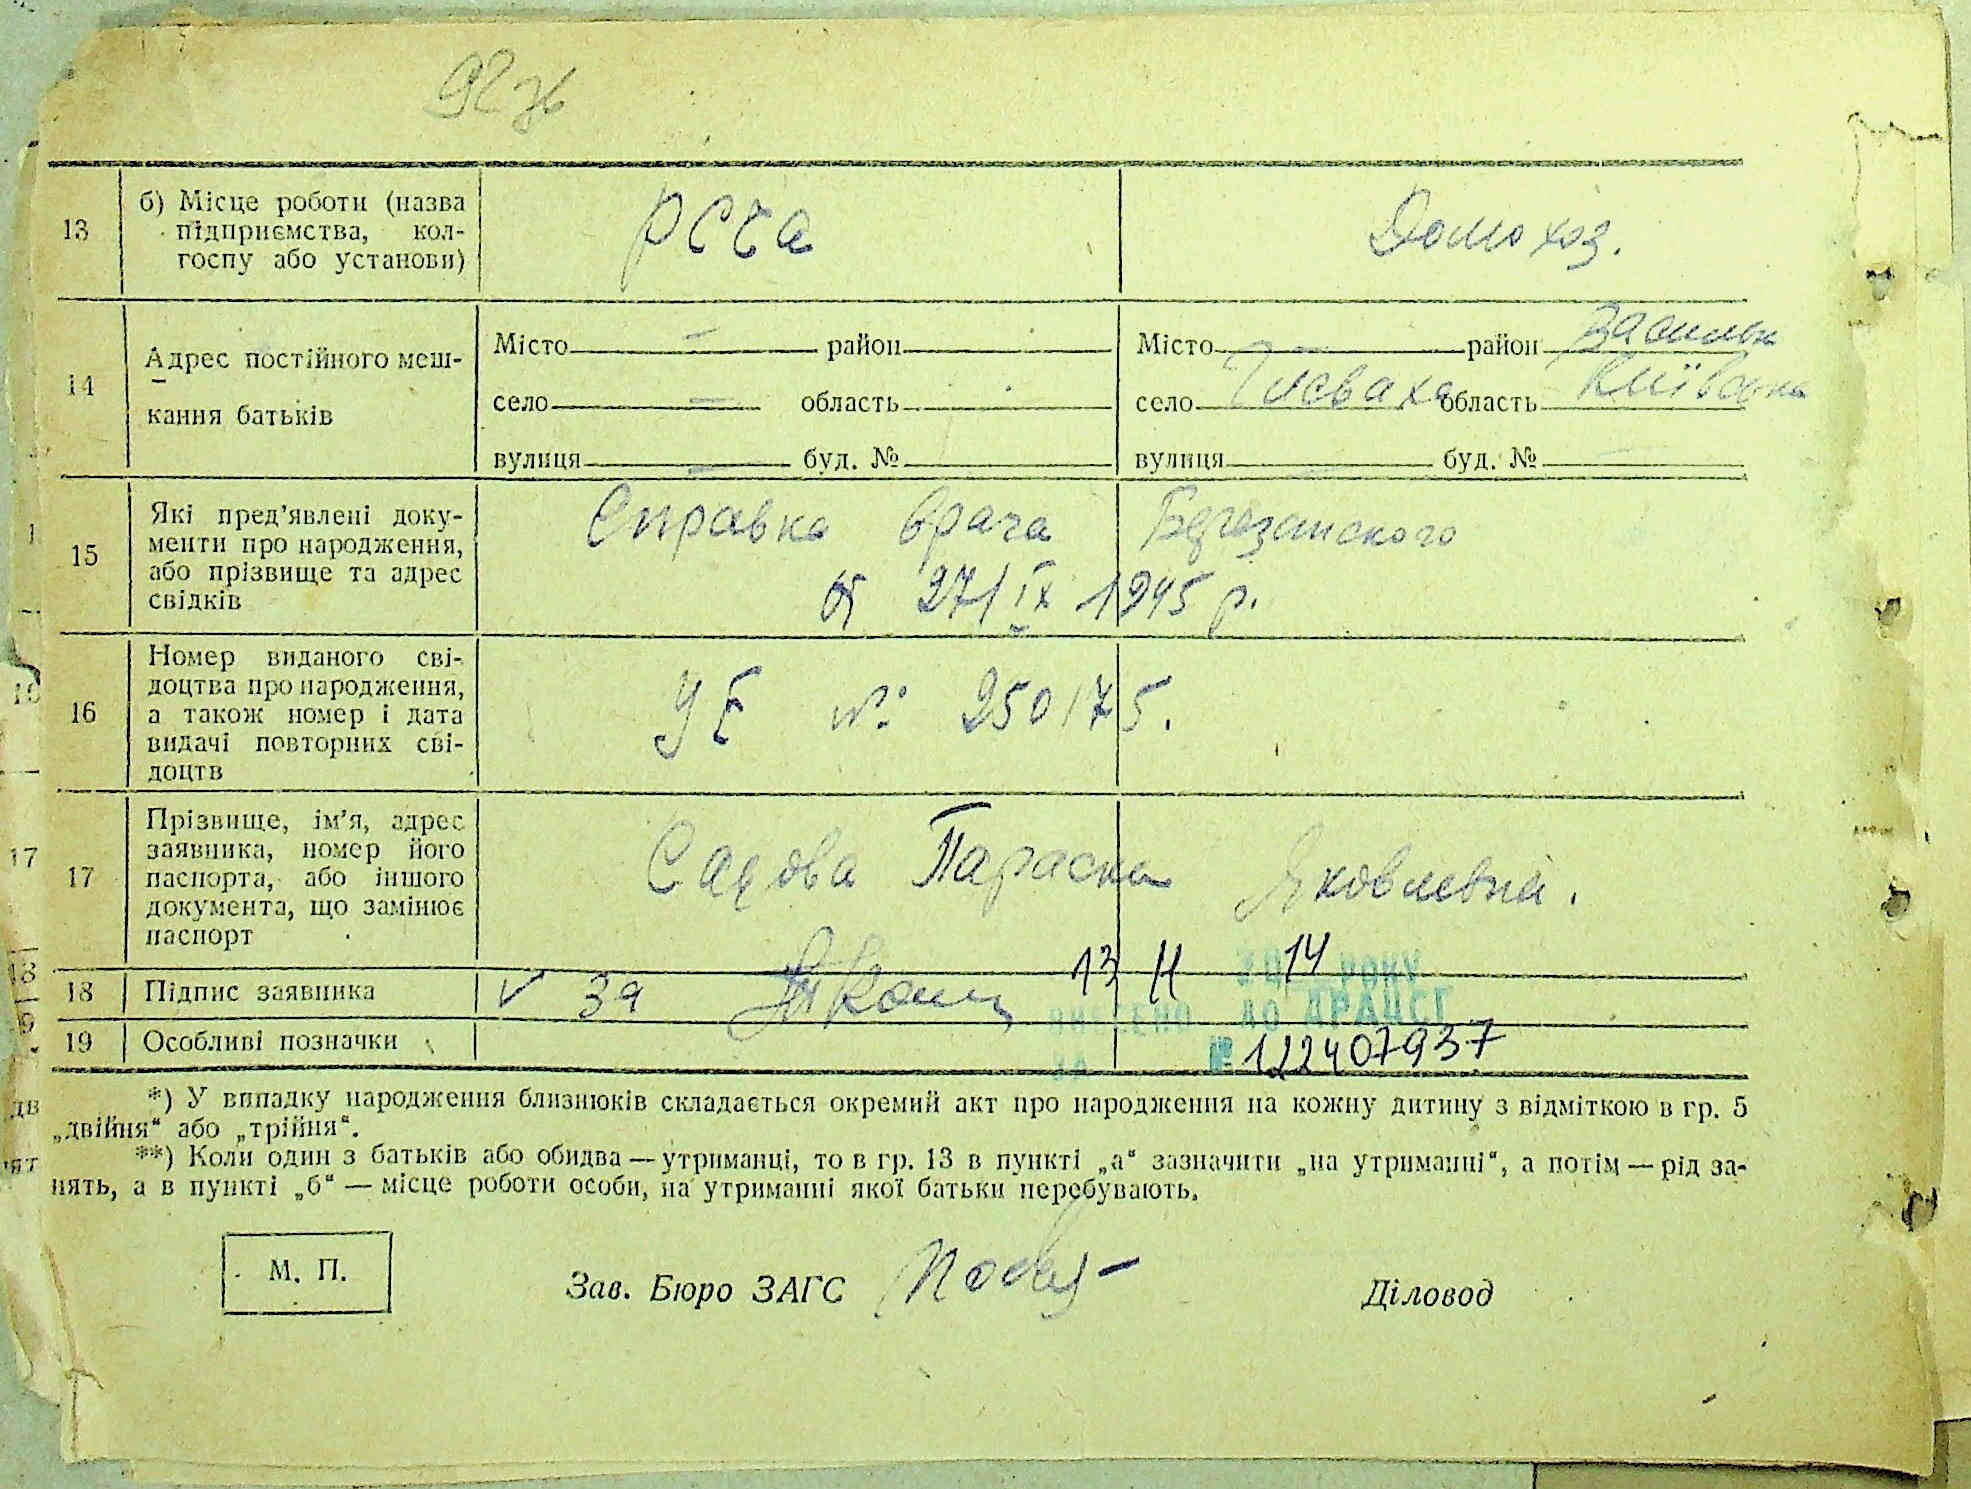 92 зв
13 б) Місце роботи (назва підприємства, кол-госпу або установи) РСЧА Домохоз.
14 Адрес постійного меш-кання батьків
Місто — район
село — область
вулиця — буд. №
Місто — район Васильк
село Глеваха область Київська
вулиця — буд. №
15 Які пред’явлені доку-менти про народження, або прізвище та адрес свідків
Справка врача Березанского
от 27/IX 1945 р.
16 Номер виданого сві-доцтва про народження, а також номер і дата видачі повторних сві-доцтв
УЕ №: 250175.
17 Прізвище, ім’я, адрес заявника, номер його паспорта, або іншого документа, що замінює паспорт
Параска Яковлевна.
13 11 2014 РОКУ
18 Підпис заявника V за
ВНЕСЕНО ДО ДРАЦСГ
19 Особливі позначки
ЗА № 122407937
*) У випадку народження близнюків складається окремий акт про народження на кожну дитину з відміткою в гр. 5
„двійня“ або „трійня“.
**) Коли один з батьків або обидва — утриманці, то в гр. 13 в пункті „а“ зазначити „на утриманні“, а потім — рід за-
нять, а в пункті „б“ — місце роботи особи, на утриманні якої батьки перебувають.
М. П.
Зав. Бюро ЗАГС
Діловод